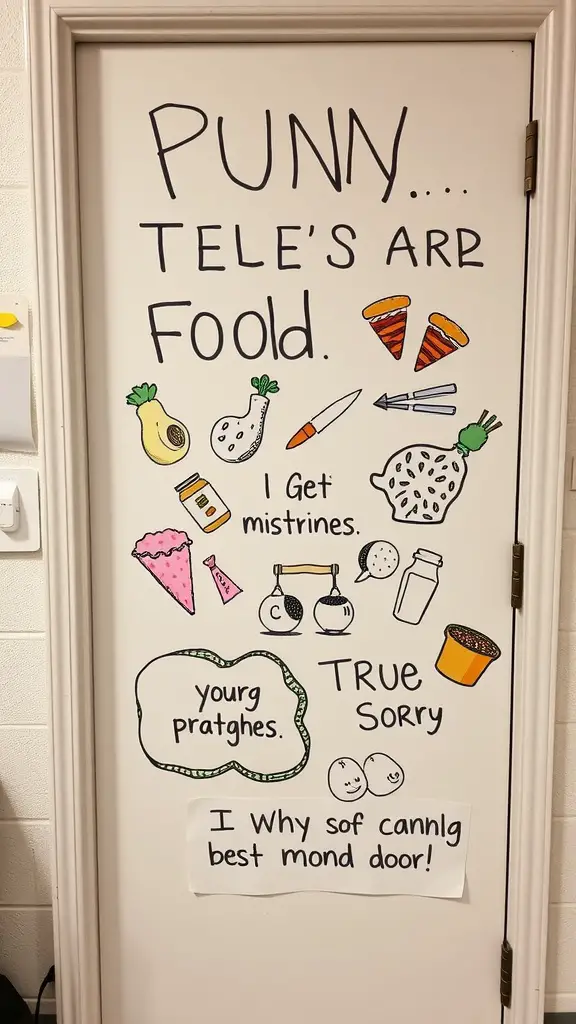 PUNNY....
TELE'S ARE
FOOld.
I Get
mistrines.
C
yourg
pratghes.
TRUe
SoRRy
I Why sof cannlg
best mond door!